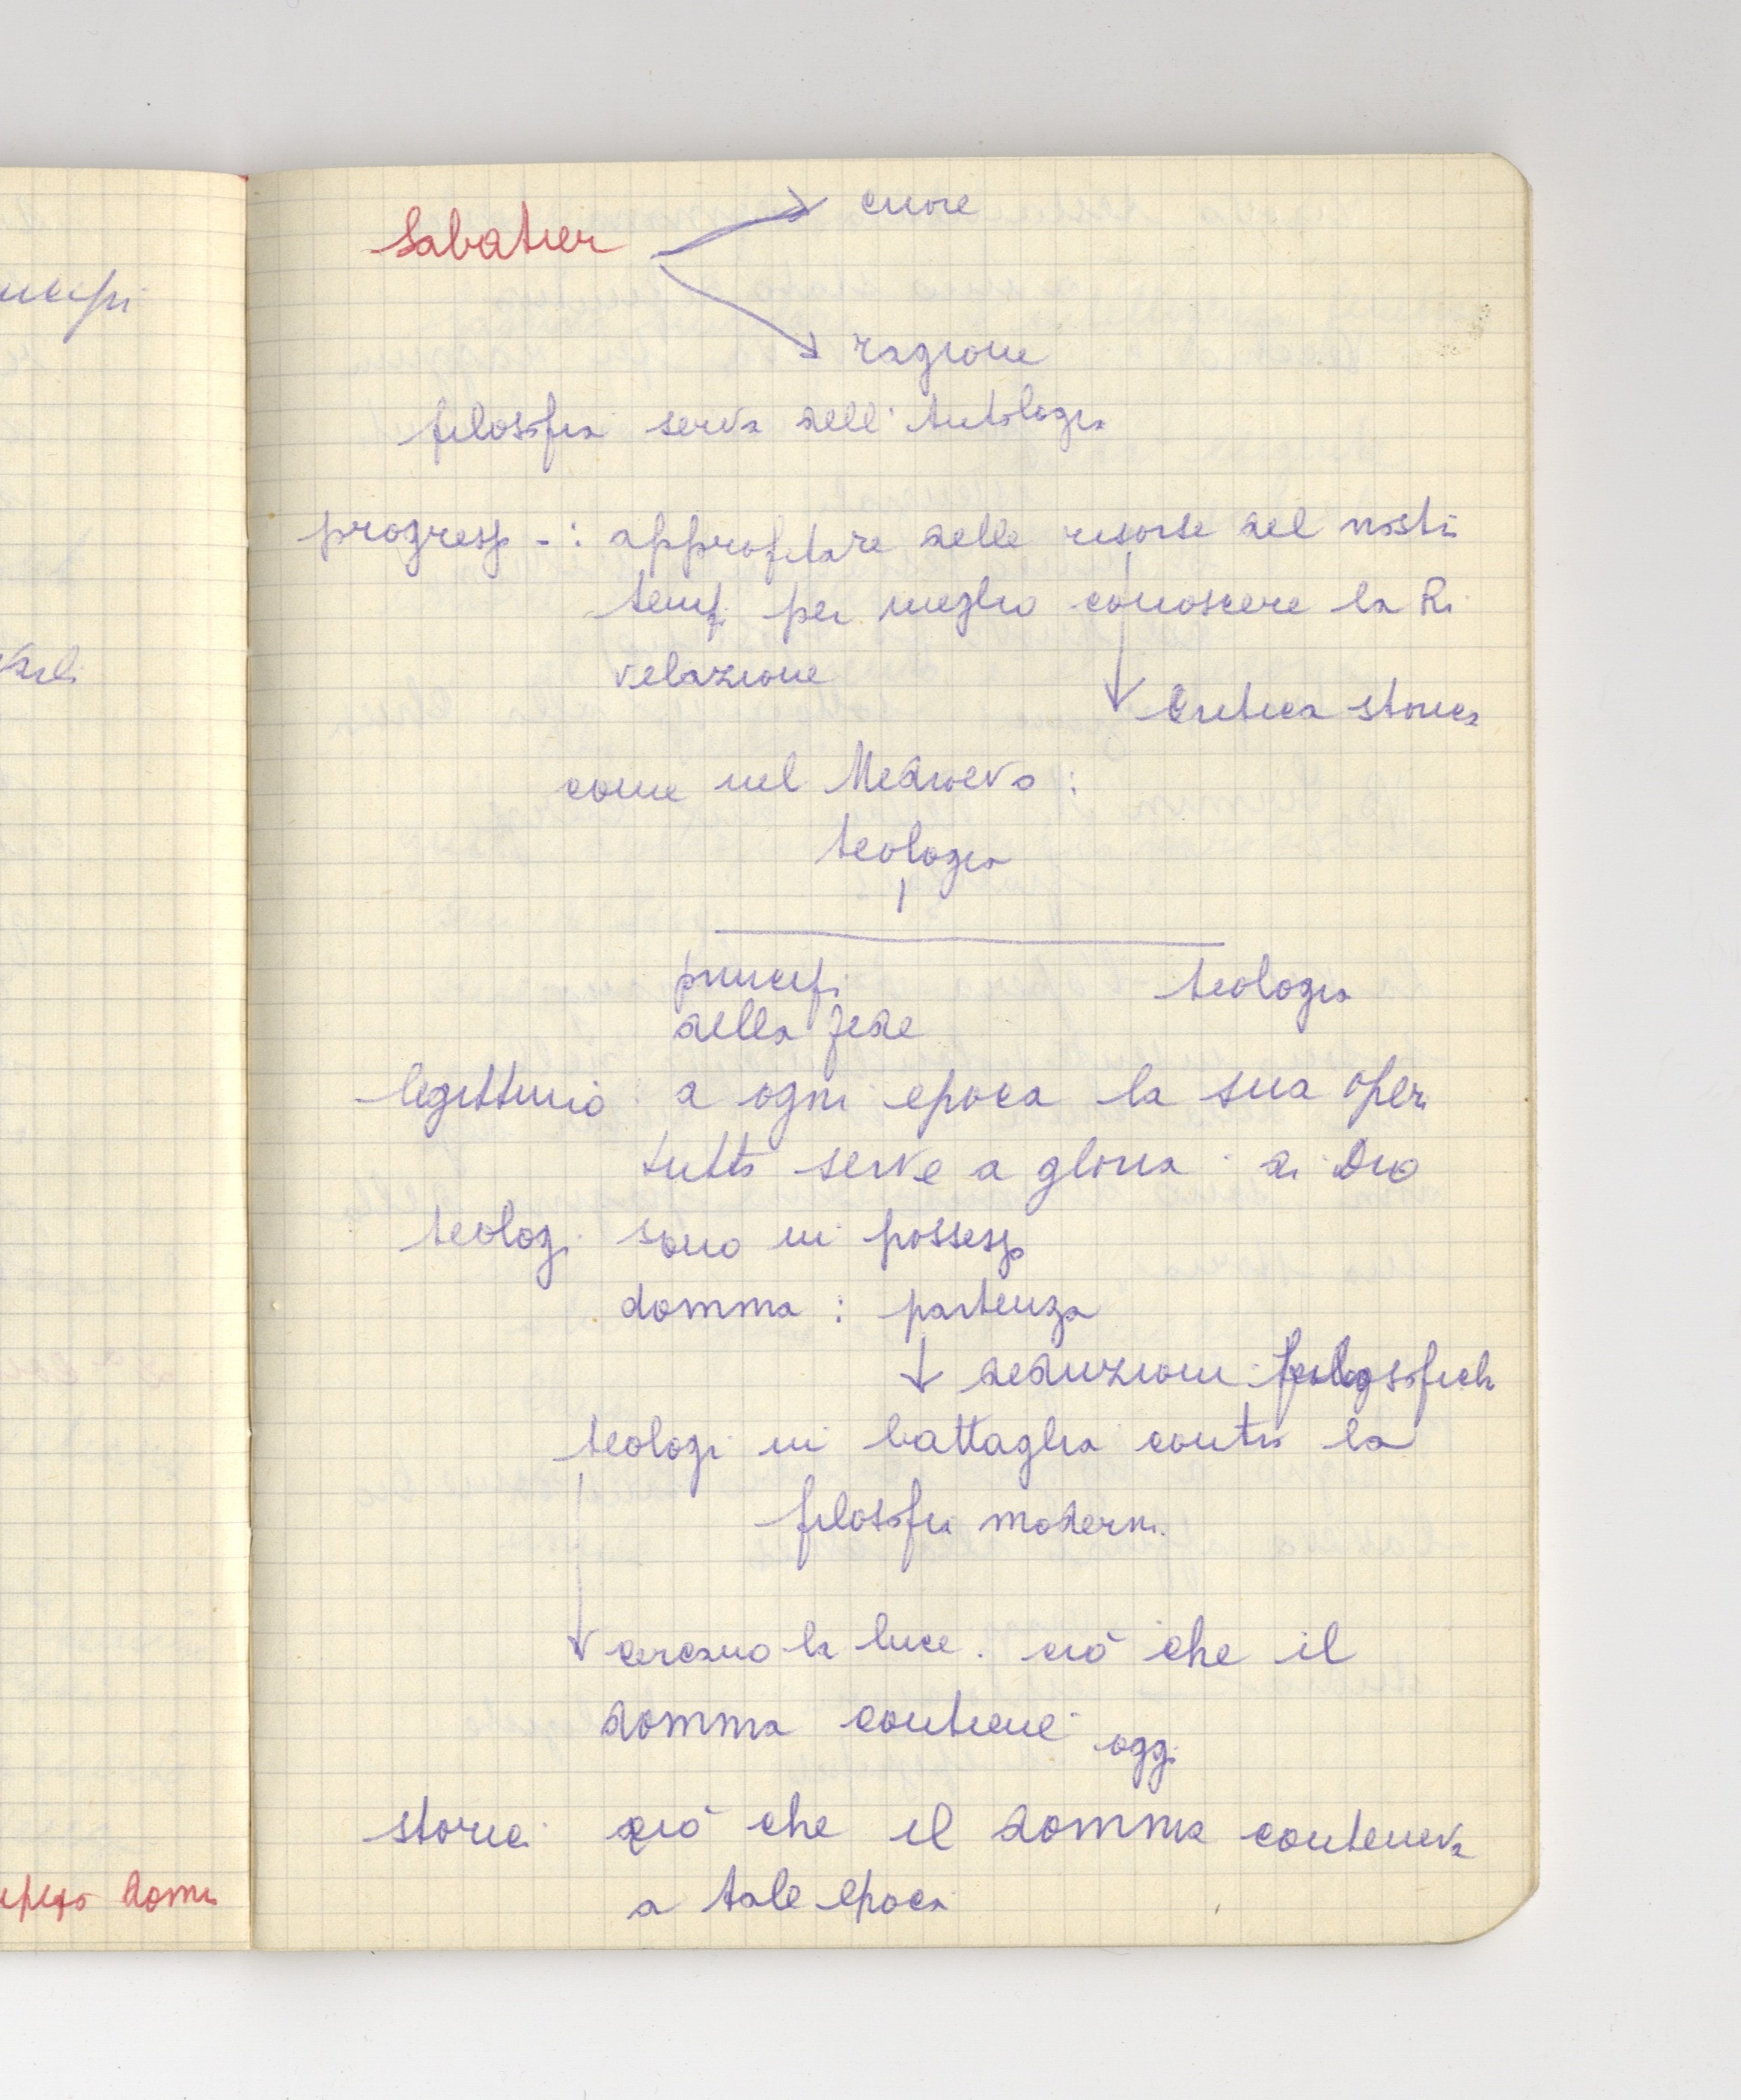 Sabatier
cuore
ragione
filosofia serva dell'
progress - : approfittare delle risorse del nostri
tempi per meglio conoscere la Ri
velazione
Critica storica
come nel Medioevo :
teologia
principi
teologia
della fede
legittimo : a ogni epoca la sua opera
tutto serve a gloria di Dio
teologi sono in possesso
domma : partenza
deduzioni filosofich
teologi in battaglia contro la
filosofia moderna.
cercano la luce. ciò che il
domma contiene oggi
storici ciò che il domma conteneva
a tale epoca
domma